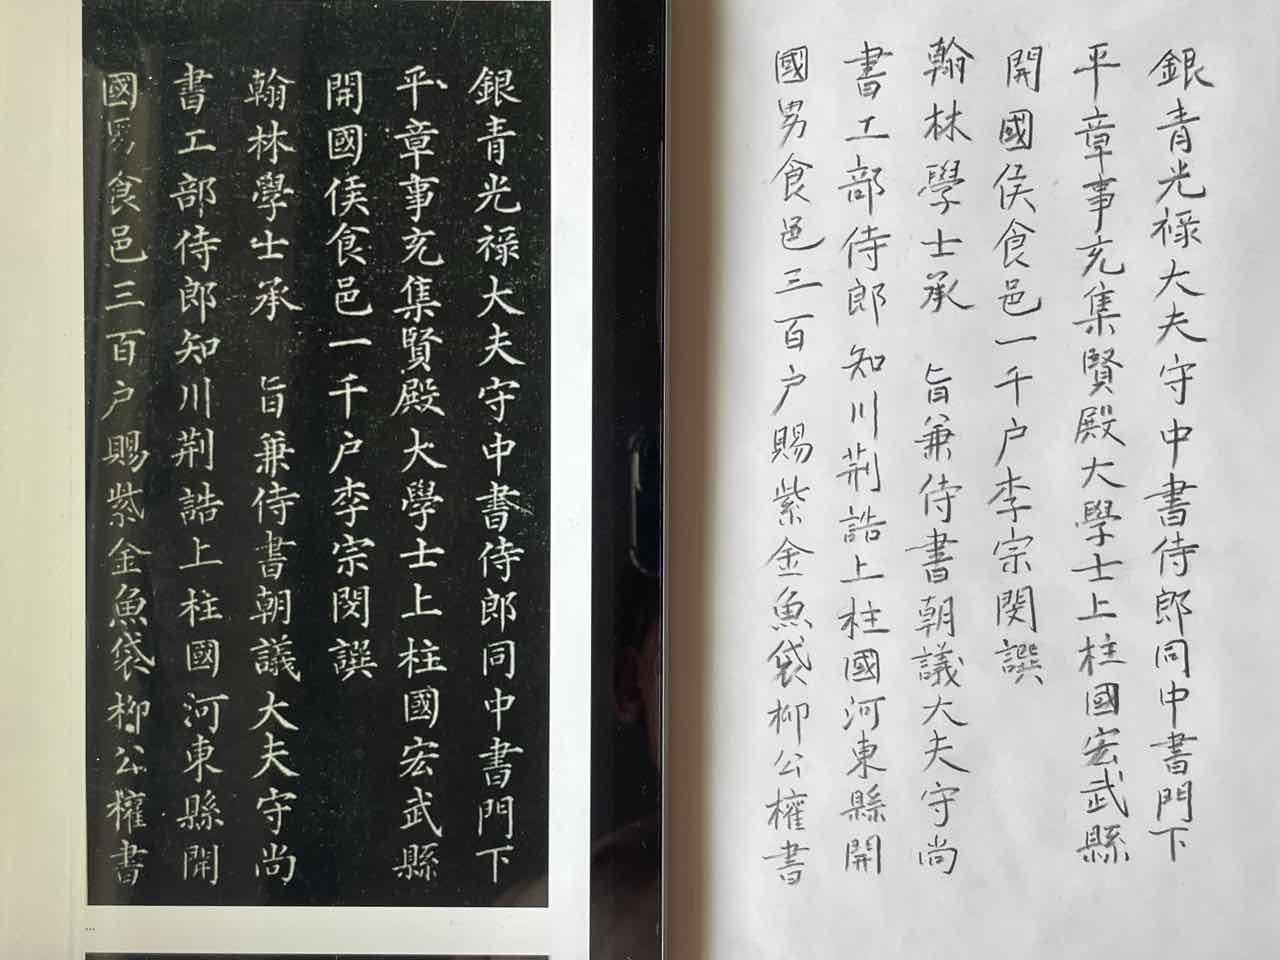 銀青光祿大夫守中書侍郎同中書門下
平章事充集賢殿大學士上柱國宏武縣
開國侯食邑一千户李宗閔譔
翰林學士承 旨兼侍書朝議大夫守尚
書工部侍郎知川荆誥上柱國河東縣開
國男食邑三百户賜紫金魚袋柳公權書
...
銀青光祿大夫守中書侍郎同中書門下
平章事充集賢殿大學士上柱國宏武縣
開國侯食邑一千户李宗閔譔
翰林學士承 旨兼侍書朝議大夫守尚
書工部侍郎知川荆誥上柱國河東縣開
國男食邑三百户賜紫金魚袋柳公權書